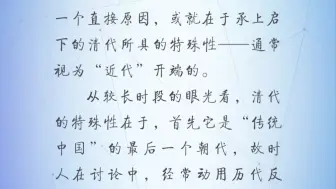 一个直接原因，或就在于承上启
下的清代所具的特殊性——通常
视为“近代”开端的。
从较长时段的眼光看，清代
的特殊性在于，首先它是“传统
中国”的最后一个朝代，故时
人在讨论中，经常动用历代反